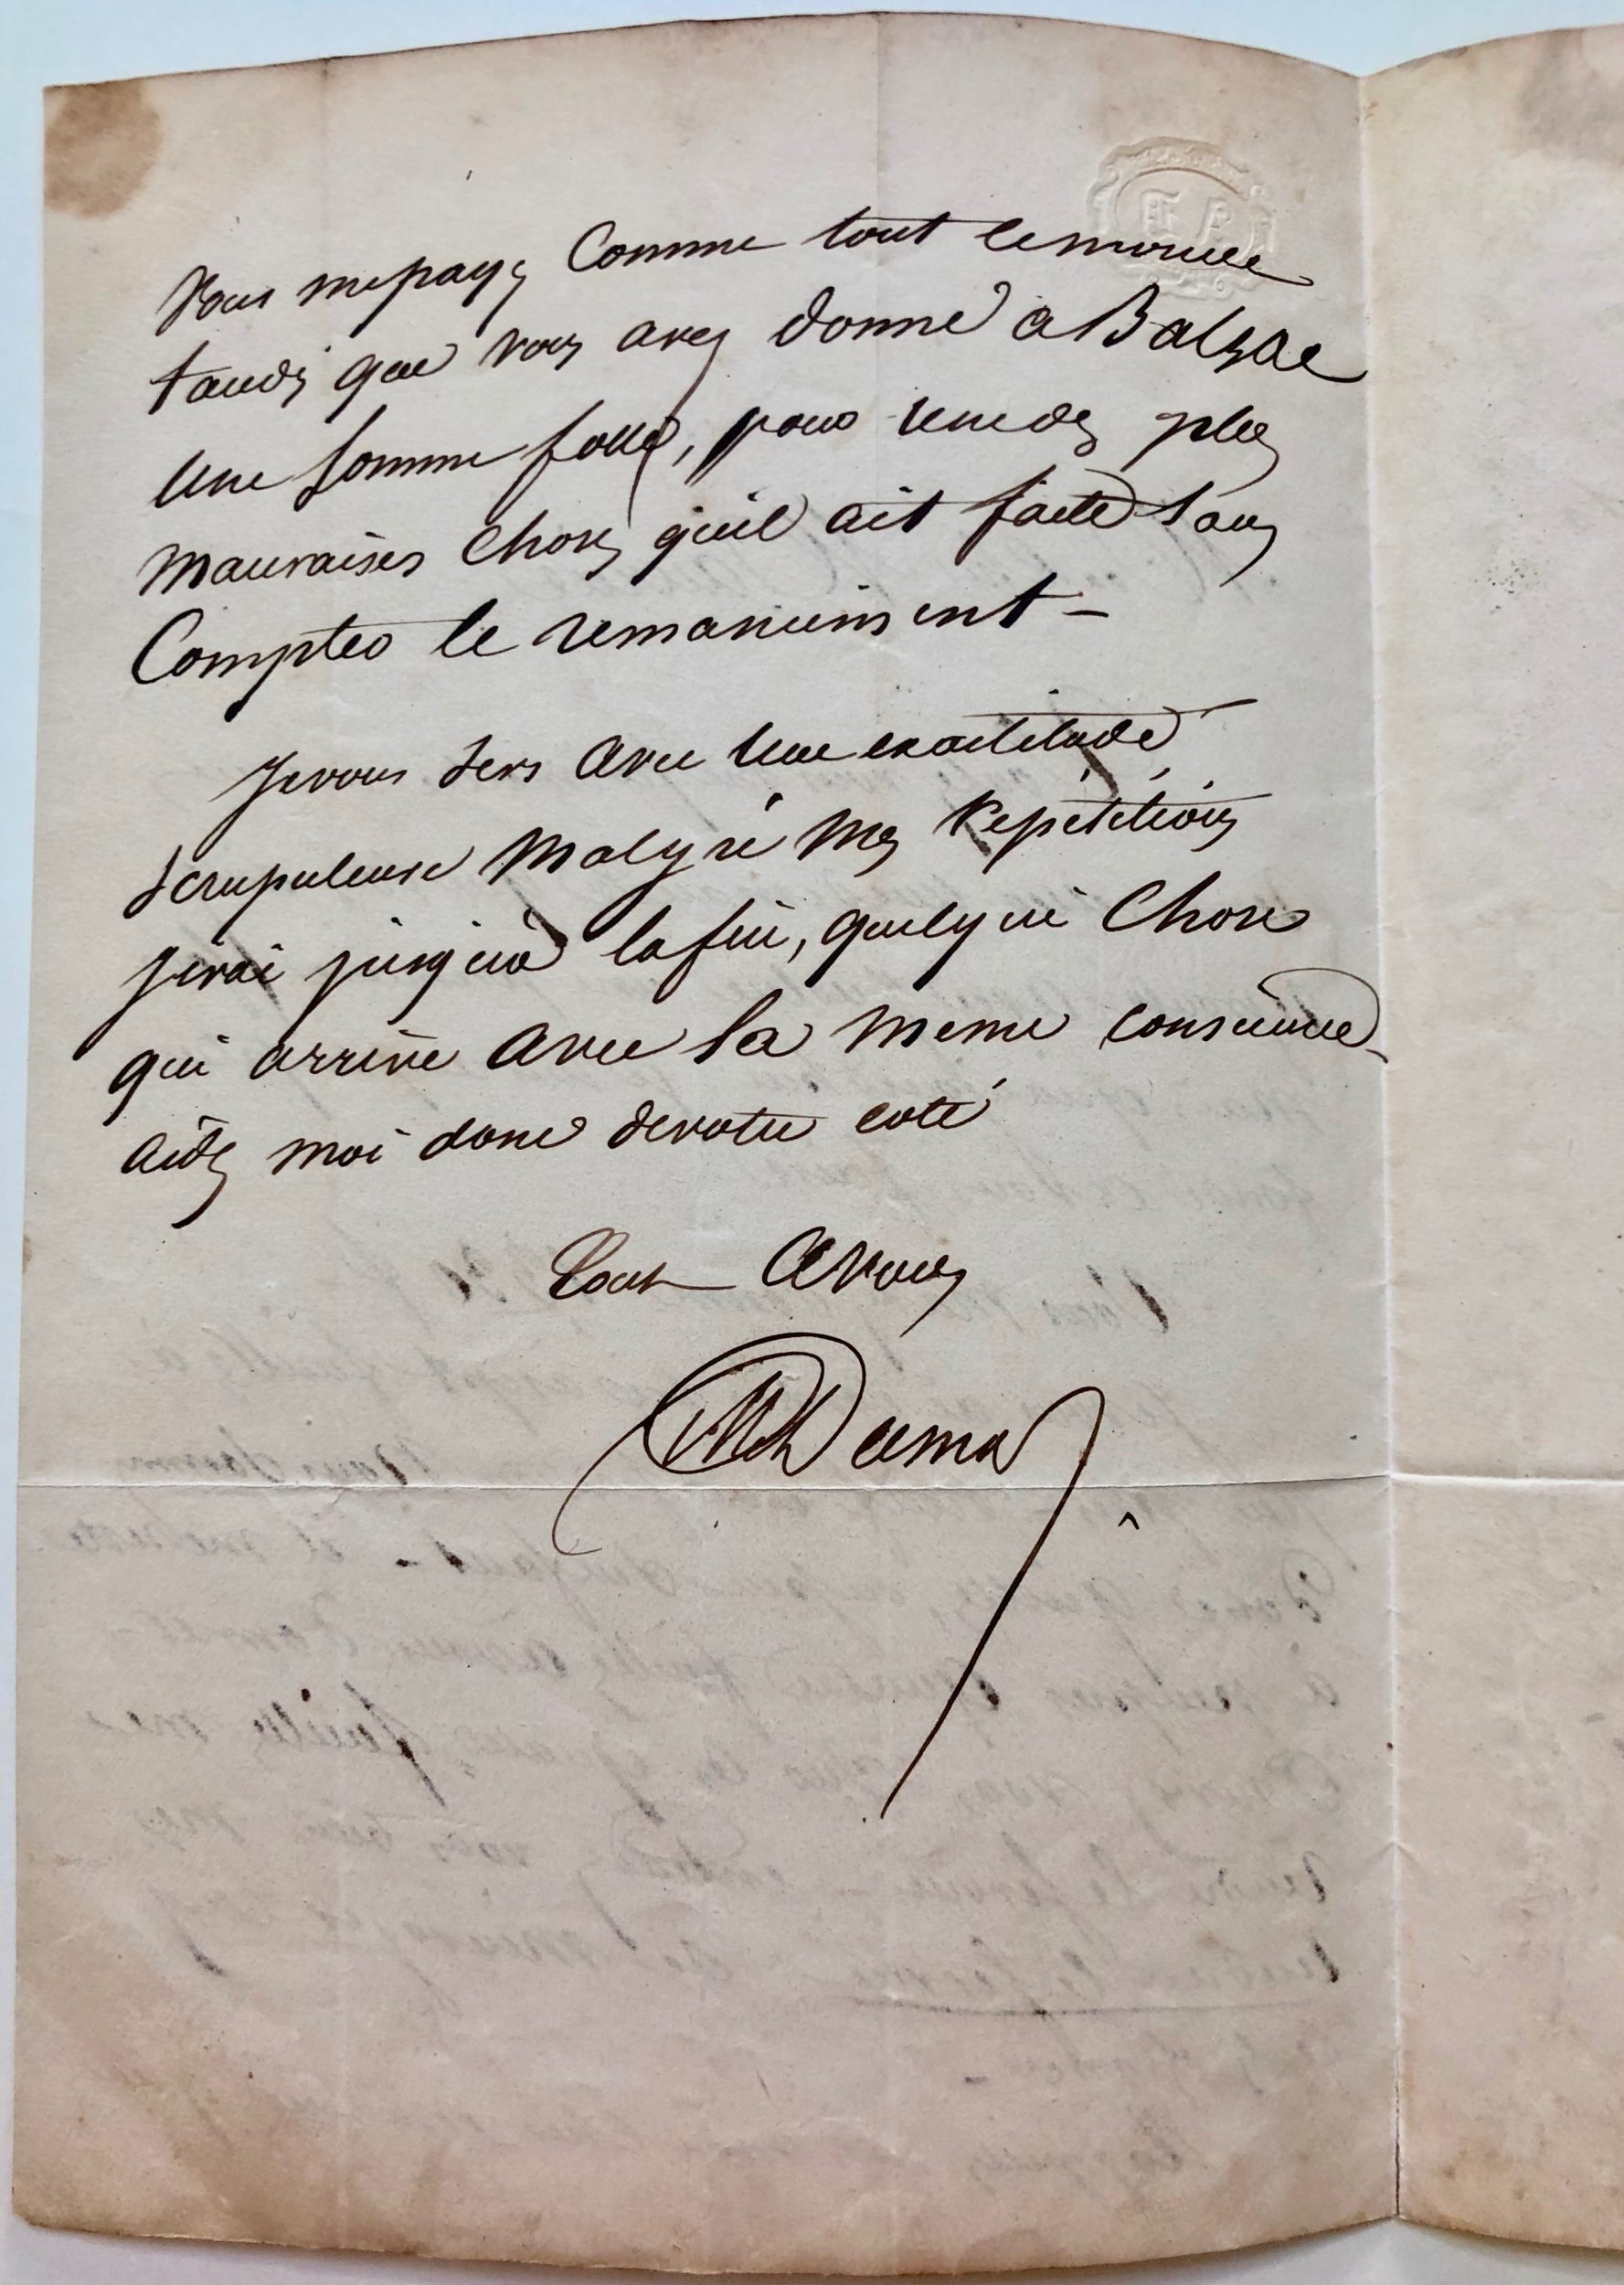 Vous me payez Comme tout le monde
tandis que vous avez donné a Balzac
Une somme folle, pour une des plus
mauvaises choses qu'il ait faite sans
Compter le remaniement –
Je vous sers avec une exactitude
scrupuleuse malgré mes répétitions
j'irai jusqu'à la fin, quelque chose
qui arrive avec la meme conscience
aidez moi donc de votre coté
Tout a vous
Al Dumas